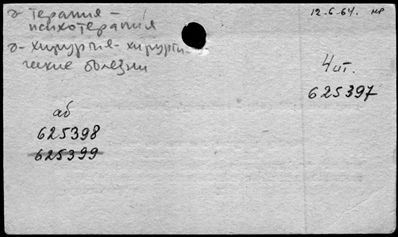 терапия -
психотерапия
хирургия - хирурги-
ческие болезни
12.6.64. нр
4 шт.
625397
аб
625398
625399